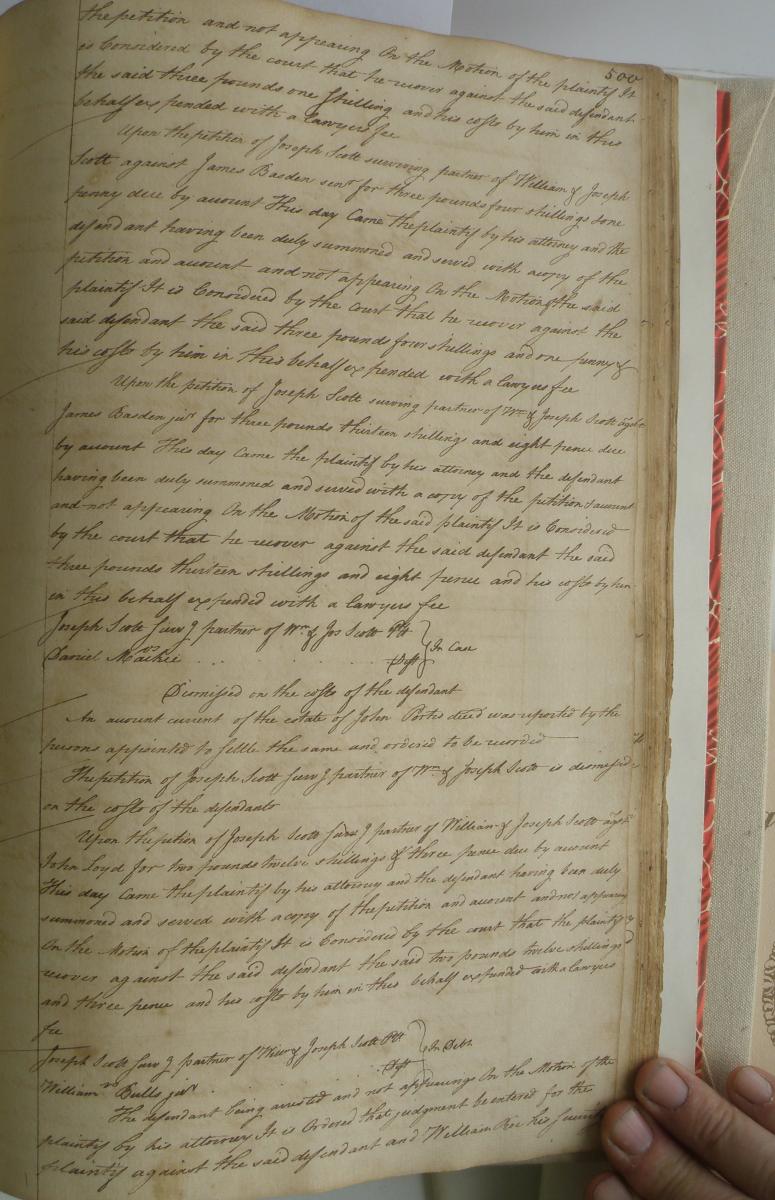 500
the petition and not appearing On the Motion of the plaintif It
is Considered by the court that he recover against the said defendant
the said three pounds one Shilling and his costs by him in this
behalf expended with a lawyers fee
Upon the petition of Joseph Scott surviving partner of William & Joseph
Scott against James Basden senr for three pounds four shillings & one
penny due by account This day Came the plaintif by his attorney and the
defendant having been duly summoned and served with a copy of the
petition and account and not appearing On the Motion of the said
plaintif It is Considered by the Court that he recover against the
said defendant the said three pounds four shillings and one penny &
his costs by him in this behalf expended with a lawyers fee
Upon the petition of Joseph Scott surving partner of Wm & Joseph Scott agst
James Basden junr for three pounds thirteen shillings and eight pence due
by account This day Came the plaintif by his attorney and the defendant
having been duly summoned and served with a copy of the petition & account
and not appearing On the Motion of the said plaintif It is Considered
by the court that he recover against the said defendant the said
three pounds thirteen shillings and eight pence and his costs by him
in this behalf expended with a lawyers fee
Joseph Scott Surv g partner of Wm & Jos Scott Plt
In Case
Daniel Mackie vs Deft
Dismissed on the costs of the defendant
An account current of the estate of John Portis decd was reported by the
persons appointed to settle the same and ordered to be recorded
The petition of Joseph Scott Surv g partner of Wm & Joseph Scott is dismissed
on the costs of the defendants
Upon the petion of Joseph Scott Surv g partner of William & Joseph Scott agst
John Loyd for two pounds twelve shillings & three pence due by account
This day Came the plaintif by his attorney and the defendant having been duly
summoned and served with a copy of the petition and account and not appearing
On the Motion of the plaintif It is Considered by the court that the plaintif
recover against the said defendant the said two pounds twelve shillings
and three pence and his costs by him in this behalf expended with a lawyers
fee
Joseph Scott Surv g partner of Wm & Joseph Scott Plt
In Debt
William vs Bulls junr Deft
The defendant being arrested and not appearing On the Motion of the
plaintif by his attorney It is Ordered that judgment be entered for the
plaintif against the said defendant and William Roe his Security